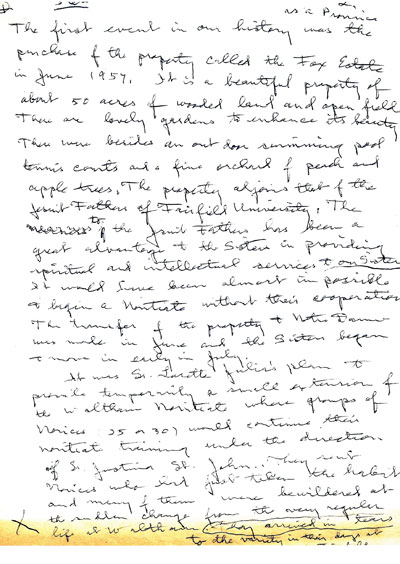 as a Province
The first event in our history was the
purchase of the property called the Fox Estate
in June 1957. It is a beautiful property of
about 50 acres of wooded land and open field
There are lovely gardens to enhance its beauty
There were besides an out door swimming pool
tennis courts and a fine orchard of peach and
apple trees. The property adjoins that of the
Jesuit Fathers of Fairfield University. The
to the Jesuit Fathers has been a
great advantage to the Sisters in providing
spiritual and intellectual services to our Sisters
It would have been almost impossible
to begin a Novitiate without their cooperation
The transfer of the property to Notre Dame
was made in June and the Sisters began
to move in early in July.
It was Sr. Loretto Julia's plan to
provide temporarily a small extension of
the Waltham Novitiate where groups of
Novices 25 or 30 would continue their
novitiate training under the direction
of Sr. Justina St. John. They sent
Novices who just taken the habit
and many of them were bewildered at
the sudden change from the very regular
life at Waltham. They arrived in tears
to the variety in their days at